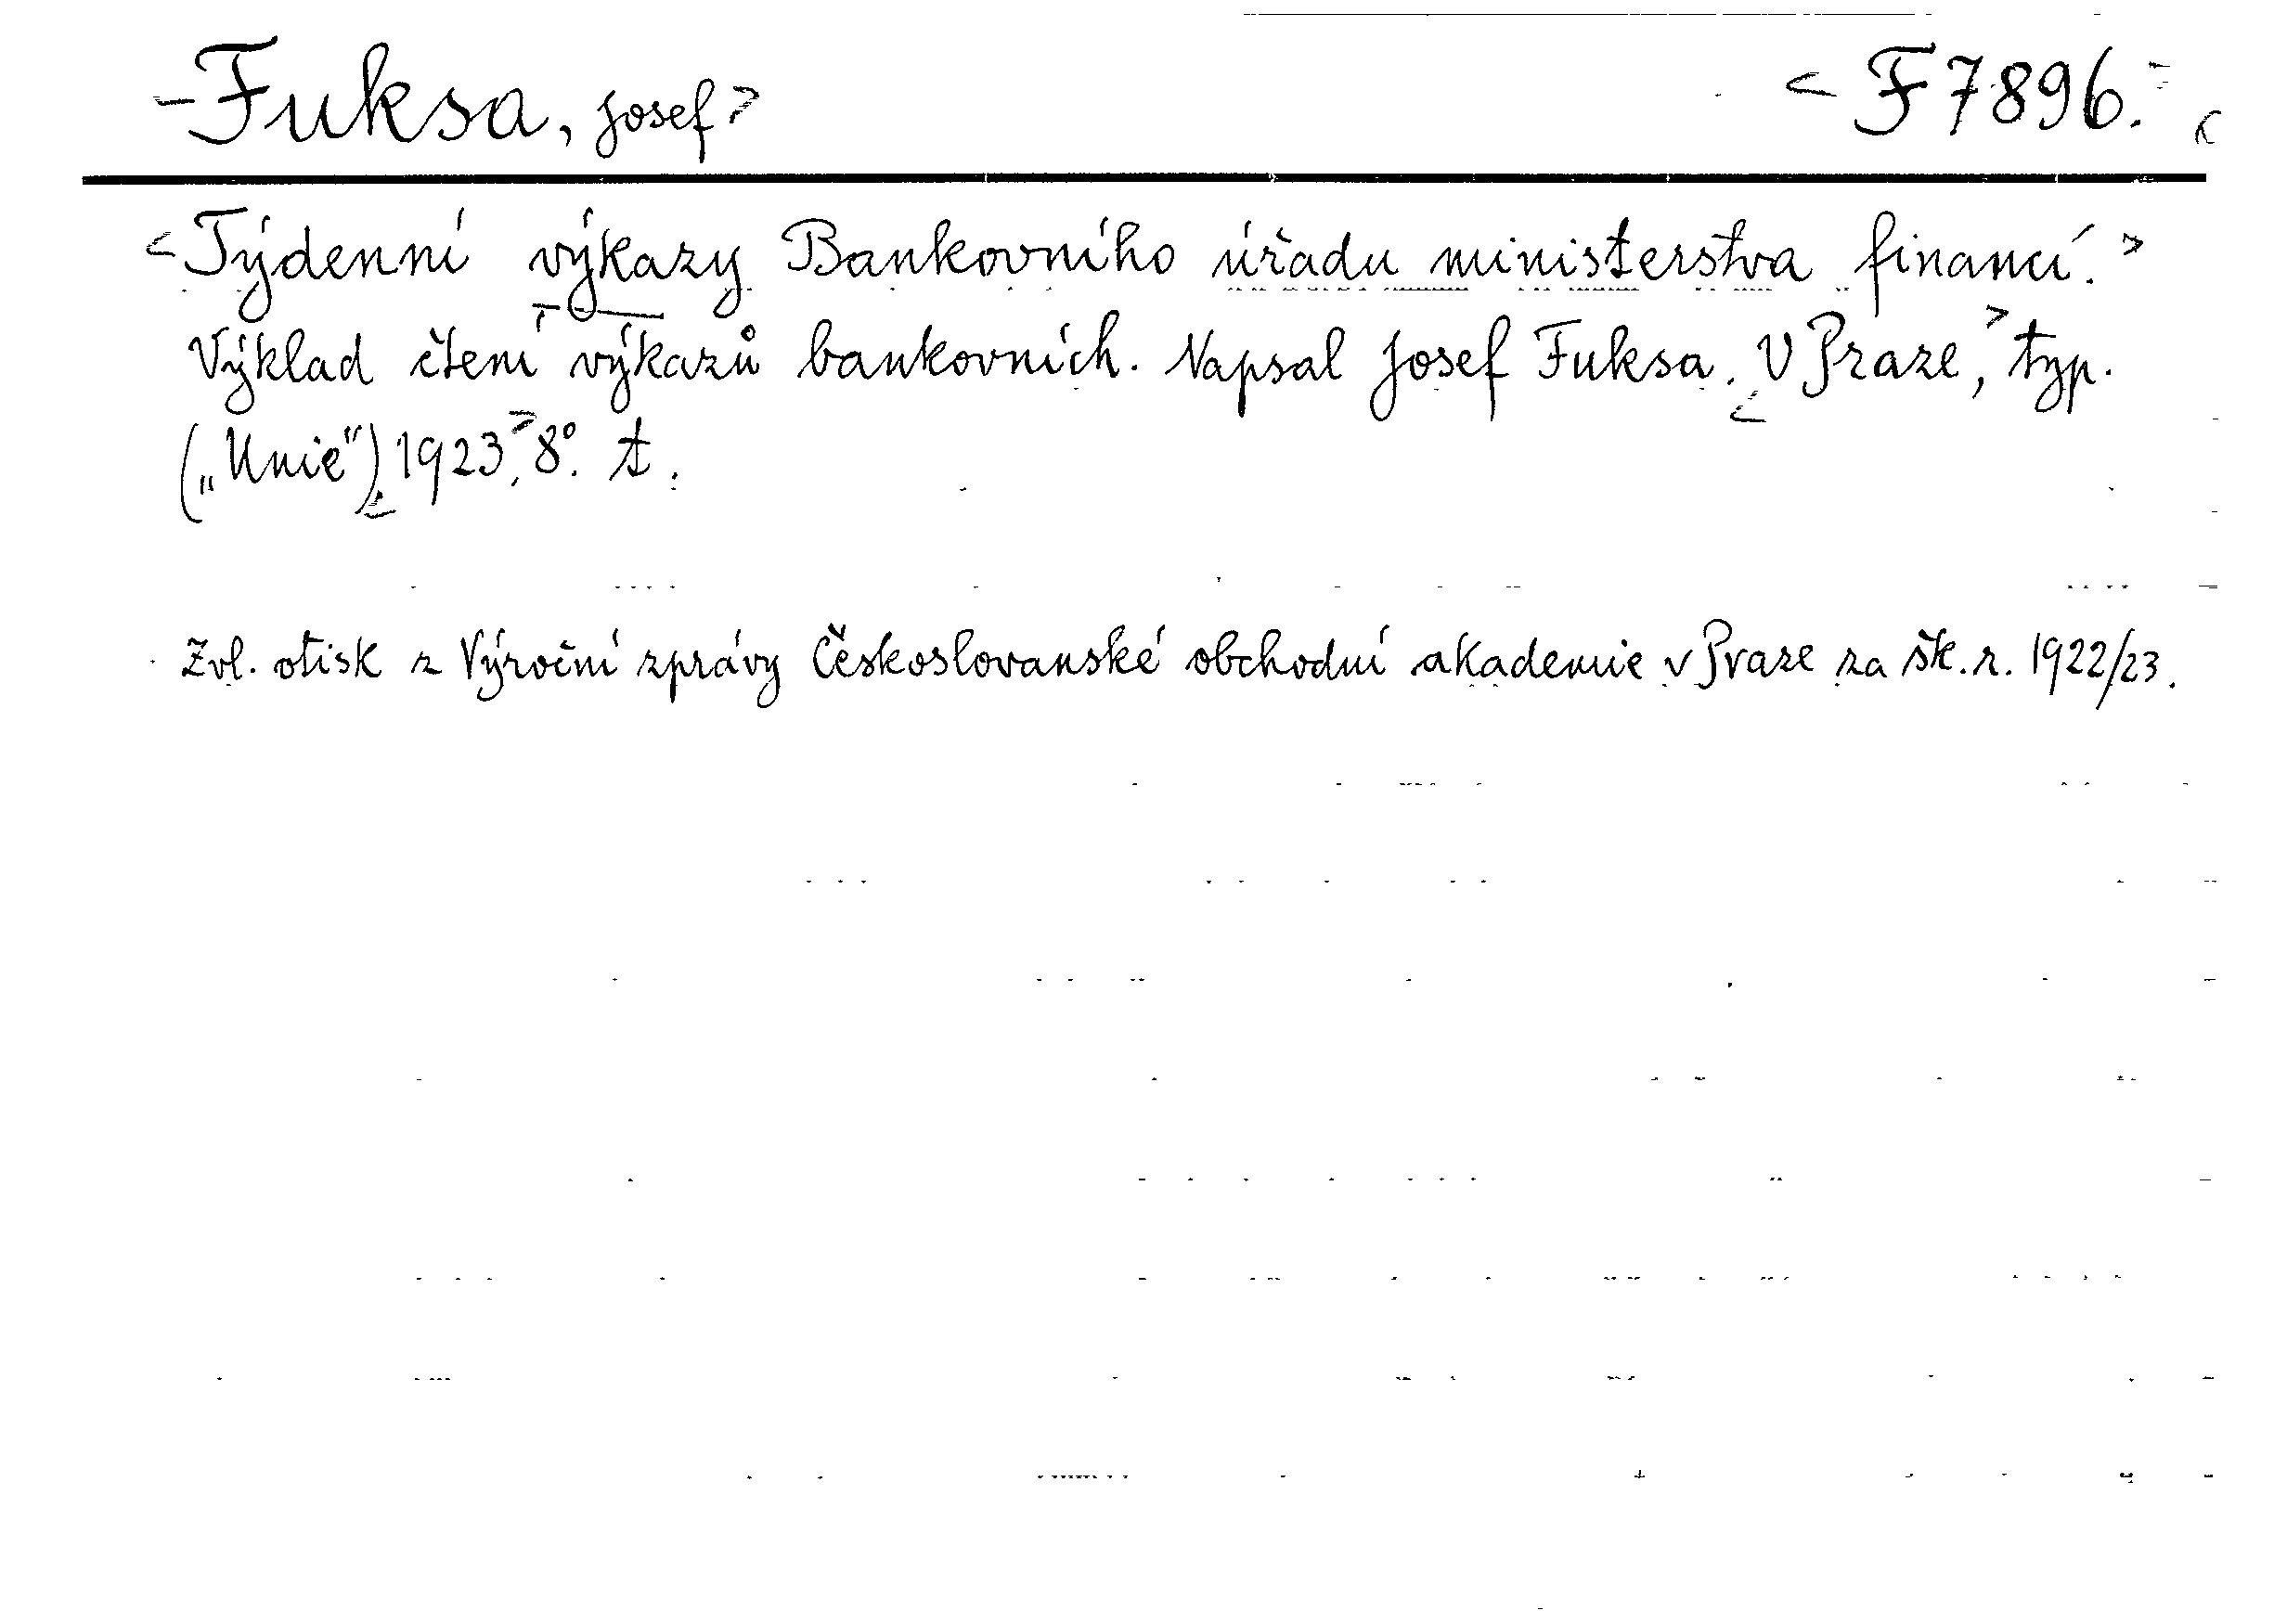 Fuksa, Josef
F 7896.
Týdenní výkazy Bankovního úřadu ministerstva financí.
Výklad čtení výkazů bankovních. Napsal Josef Fuksa. V Praze, typ.
(„Unie“) 1923, 8°. A.
Zvl. otisk z Výroční zprávy Československé obchodní akademie v Praze za šk. r. 1922/23.